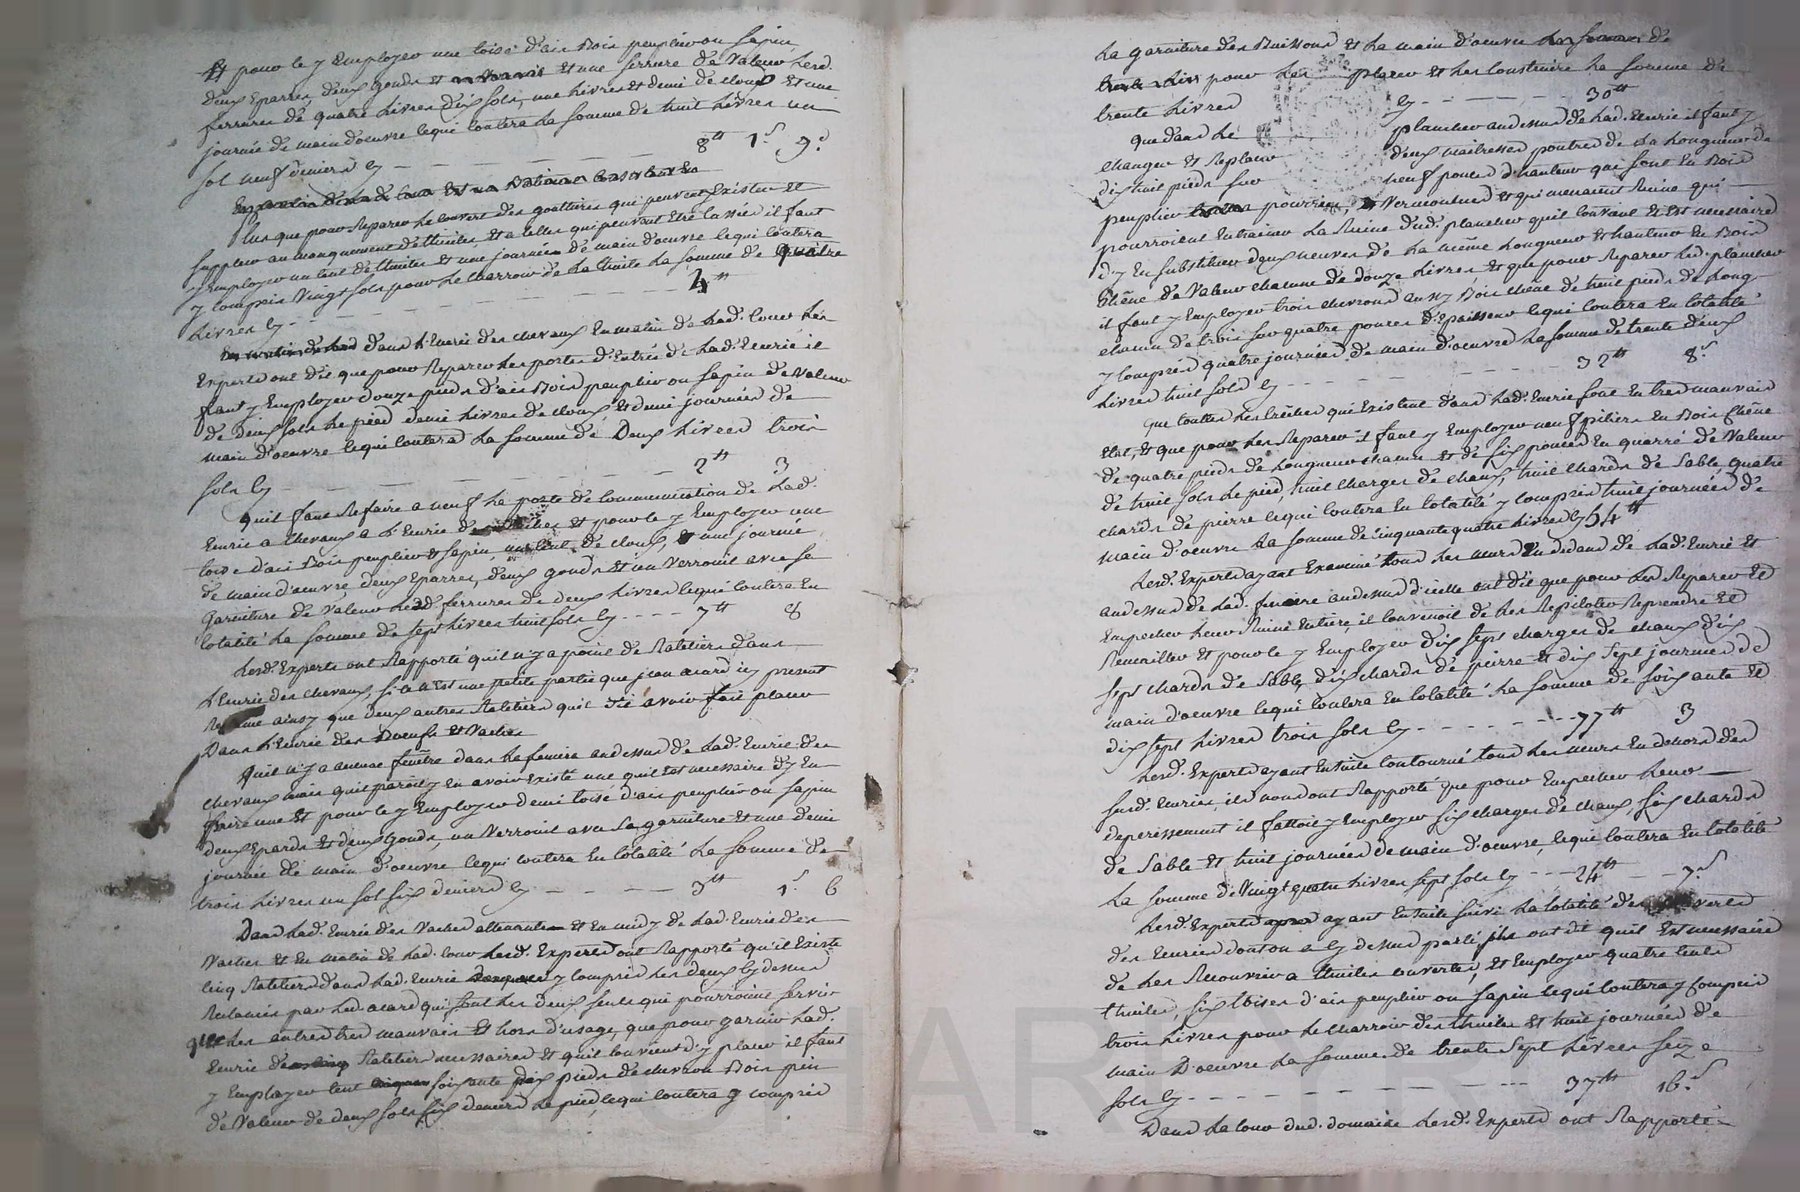 Et pour le y Employer une toise d'ais Bois peuplier ou sapin
deux Eparres, deux gonds et Et une serrure de Valeur lesd.
ferrures de quatre livres dix sols, une livre et demi de cloux Et une
journée de main d'oeuvre lequi coutera la somme de huit livres un
sol neuf deniers cy 8tt 1s 9d
Plus que pour Reparer le couvert des gouttieres qui peuvent Exister et
suppleer au manquement de thuiles et a celles qui peuvent Etre Cassées il faut
y Employer un cent de thuiles et une journée de main d'oeuvre lequi coutera
y compris Vingt sols pour le charroir de la thuile la somme de quatre
livres cy 4tt
dans l'Eurie des chevaux En matin de lad. Cour les
Experts ont dit que pour Reparer les portes d'Entrée de lad. Eurie il
faut y Employer douze pieds d'ais Bois peuplier ou sapin de Valeur
de deux sols le pied demi livres de cloux et demi journée de
main d'oeuvre lequi coutera la somme de Deux livres trois
sols cy 2tt 3
quil faut Refaire a neuf la porte de Communication de lad.
Eurie a Chevaux a l'Eurie des et pour le y Employer une
toise d'ais Bois peuplier et sapin un cent de cloux, et une journée
de main d'oeuvre, deux Eparres, deux gonds et un Verrouil avec sa
garniture de Valeur lesd. ferrures de deux livres lequi coutera En
totalité la somme de sept livres huit sols cy 7tt 8
Lesd. Experts ont Rapporté qu'il n'y a point de Rateliers dans
l'Eurie des chevaux, si ce n'Est une petite partie que jean acard icy present
ainsy que deux autres Rateliers quil dit avoir fait placer
Dans l'Eurie des Boeufs et Vaches
Quil n'y a aucune fenêtre dans la feniere au dessus de lad. Eurie des
chevaux mais qui paroit y en avoir Existé une quil Est necessaire d'y En
faire une Et pour le y Employer demi toise d'ais peuplier ou sapin
deux Epards et deux gonds, un Verrouil avec Sa garniture Et une demi
journée de main d'oeuvre lequi coutera En totalité la somme de
trois livres un sol six deniers cy 3tt 1s 6
Dans lad. Eurie des Vaches attenante et En midy de lad. Eurie des
Vaches et En matin de lad. Cour lesd. Experts ont Rapporté qu'il Existe
cinq Rateliers dans lad. Eurie y Compris les deux cy dessus
Reclamés par led. acard qui sont les deux seuls qui pourroient servir
que les autres tres mauvais Et hors d'usage, que pour garnir lad.
Eurie de Ratelier necessaires Et quil Convient d'y placer il faut
y Employer cent soixante dix pieds de chevron Bois pin
de Valeur de deux sols six deniers le pied, lequi coutera y compris
La garniture des Buissons Et la main d'oeuvre de
pour les placer et les Construire la somme de
trente livres cy 30tt
Que dans le plancher au dessus de lad. Eurie il faut y
changer et Replacer deux maitresses poutres de la Longueur de
dix huit pieds sur neuf pouces d'hauteur qui sont En Bois
peuplier pourries, Vermoulues et qui menacent Ruine qui
pourroient Entrainer La Ruine dud. plancher quil Convient Et Est necessaire
d'y En substituer deux neuves de la même Longueur Et hauteur En Bois
Chêne de Valeur chacune de douze livres, Et que pour Reparer led. plancher
il faut y Employer trois chevrons aussy Bois chêne de huit pieds de Long
chacun de trois sur quatre pouces d'Epaisseur lequi coutera En totalité
y Compris quatre journées de main d'oeuvre la somme de trente deux
livres huit sols cy 32tt 8s
Que toutes les Créches qui Existent dans lad. Eurie sont En tres mauvais
Etat, Et que pour les Reparer il faut y Employer neuf piliers En Bois Chêne
de quatre pieds de Longueur chacun et de six pouces En quarré de Valeur
de huit sols le pied, huit charges de chaux, huit chards de Sable, quatre
chards de pierre lequi coutera En totalité y Compris huit journées de
main d'oeuvre la somme de Cinquante quatre livres cy 54tt
Lesd. Experts ayant Examiné tous les murs En dedans de lad. Eurie Et
au dessus de lad. feniere au dessus d'icelle ont dit que pour les Reparer Et
Empecher leur Ruine Entiere, il convenoit de les Repicoter Reprendre Et
Remailler et pour le y Employer dix sept charges de chaux dix
sept chards de Sable, dix chards de pierre et dix Sept journées de
main d'oeuvre lequi coutera En totalité la somme de soixante Et
dix sept livres trois sols cy 77tt 3
Lesd. Experts ayant Ensuite Contourné tous les murs En dehors des
susd. Euries, ils nous ont Rapporté que pour Empecher leur
deperissement il falloit y Employer six charges de chaux, six chards
de Sable Et huit journées de main d'oeuvre, lequi coutera En totalité
la somme de Vingt quatre livres sept sols cy 24tt 7s
Lesd. Experts ayant Ensuite suivi la totalité des Couverts
des Euries dont on a cy dessus parlé, ont dit quil Est necessaire
de les Recouvrir a thuiles couvertes, et Employer quatre cents
thuiles, six toises d'ais peuplier ou sapin lequi coutera y Compris
trois livres pour le charroir des thuiles Et huit journées de
main D'oeuvre la somme de trente sept livres seize
sols cy 37tt 16s
Dans la Cour dud. domaine lesd. Experts ont Rapporté